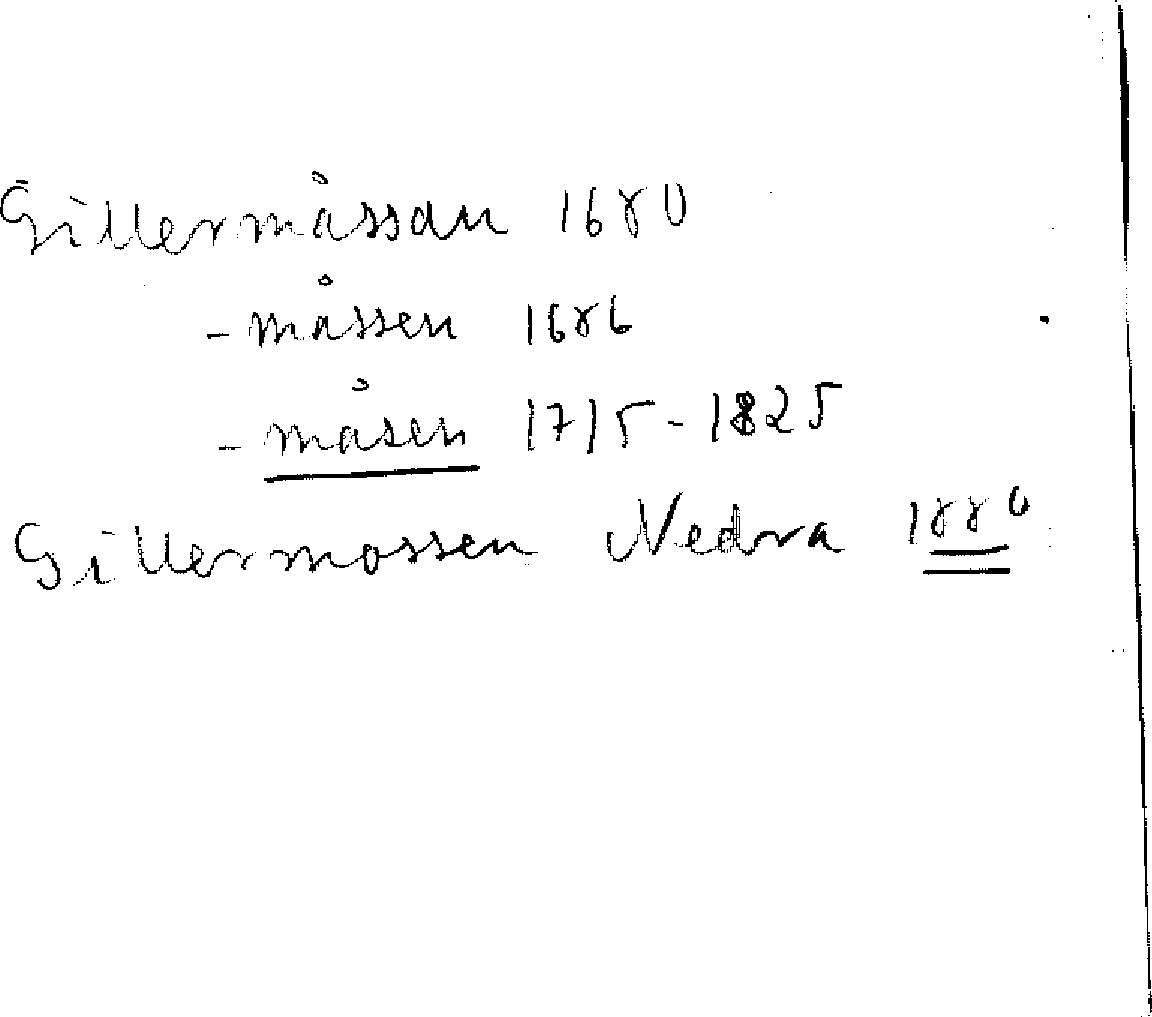 Gillermåssan 1680
- måssen 1686
- måsen 1715-1825
Gillermossen Nedra 1880